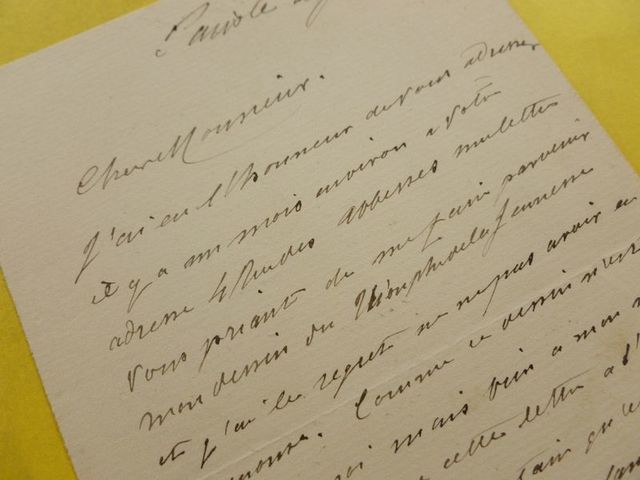 Paris le
Cher Monsieur.
J'ai eu l'honneur de vous adresser
il y a un mois environ à votre
adresse 4 Rue des abbesses
vous priant de me faire parvenir
mon dessin du Triomphe de la Jeunesse
et j'ai le regret ne pas avoir eu
Comme ce dessin n'est
mais bien à mon
cette lettre à l'